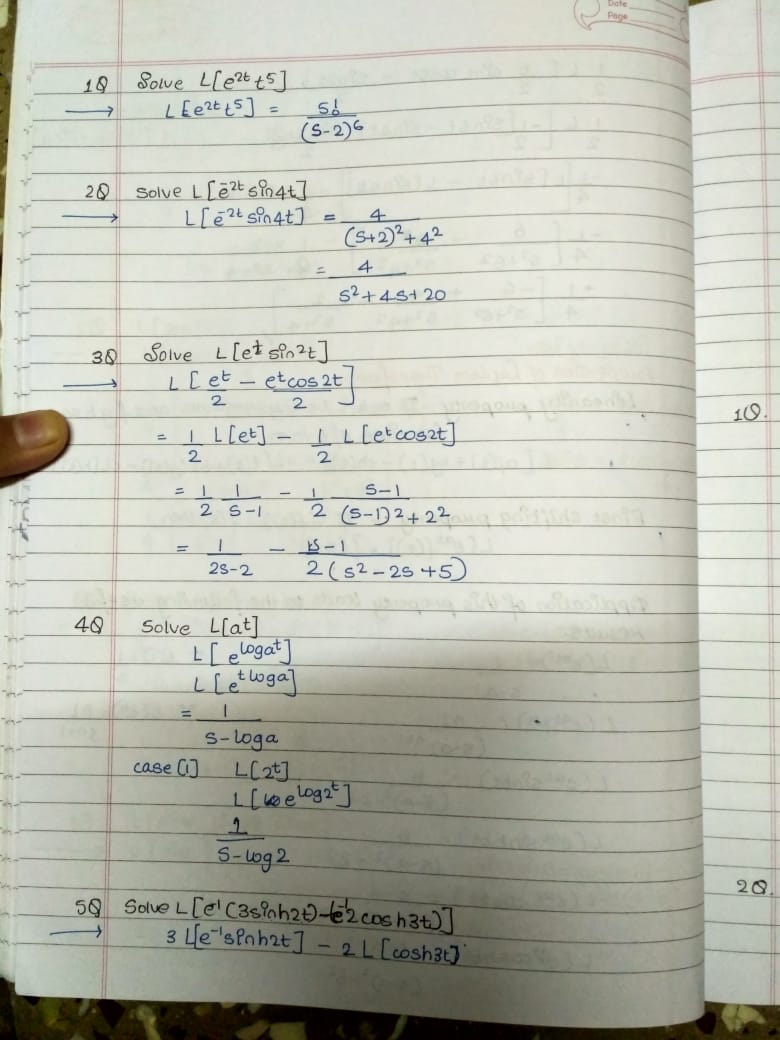 Date
Page
1Q Solve L[e²ᵗ t⁵]
→ L[e²ᵗ t⁵] = 5! / (S-2)⁶
2Q Solve L[e⁻²ᵗ sin4t]
→ L[e⁻²ᵗ sin4t] = 4 / (S+2)²+4²
= 4 / S²+4S+20
3Q Solve L[eᵗ sin²t]
→ L[eᵗ/2 - eᵗcos2t/2]
= 1/2 L[eᵗ] - 1/2 L[eᵗcos2t]
= 1/2 1/S-1 - 1/2 S-1/(S-1)²+2²
= 1/2S-2 - S-1/2(S²-2S+5)
4Q Solve L[aᵗ]
L[e^logaᵗ]
L[e^tloga]
= 1 / S-loga
case(i) L[2ᵗ]
L[e^log2ᵗ]
1 / S-log2
5Q Solve L[e⁻¹(3sinh2t)-(e⁻¹2cosh3t)]
→ 3L[e⁻¹sinh2t] - 2L[cosh3t]
1Q.
2Q.